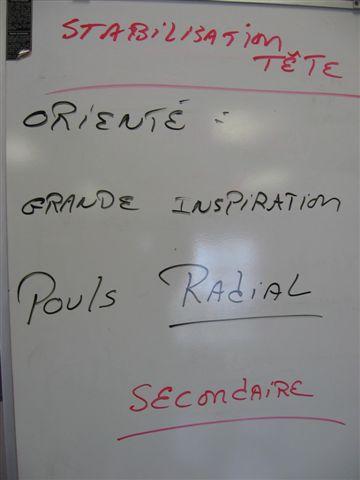 STABILISATION
TÊTE
ORIENTÉ :
GRANDE INSPIRATION
POULS RADIAL
SECONDAIRE